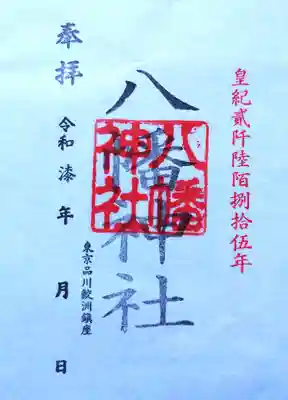 皇紀貳阡陸陌捌拾伍年
八幡神社
八幡
神社
奉拝
東京品川鮫洲鎮座
令和漆年 月 日